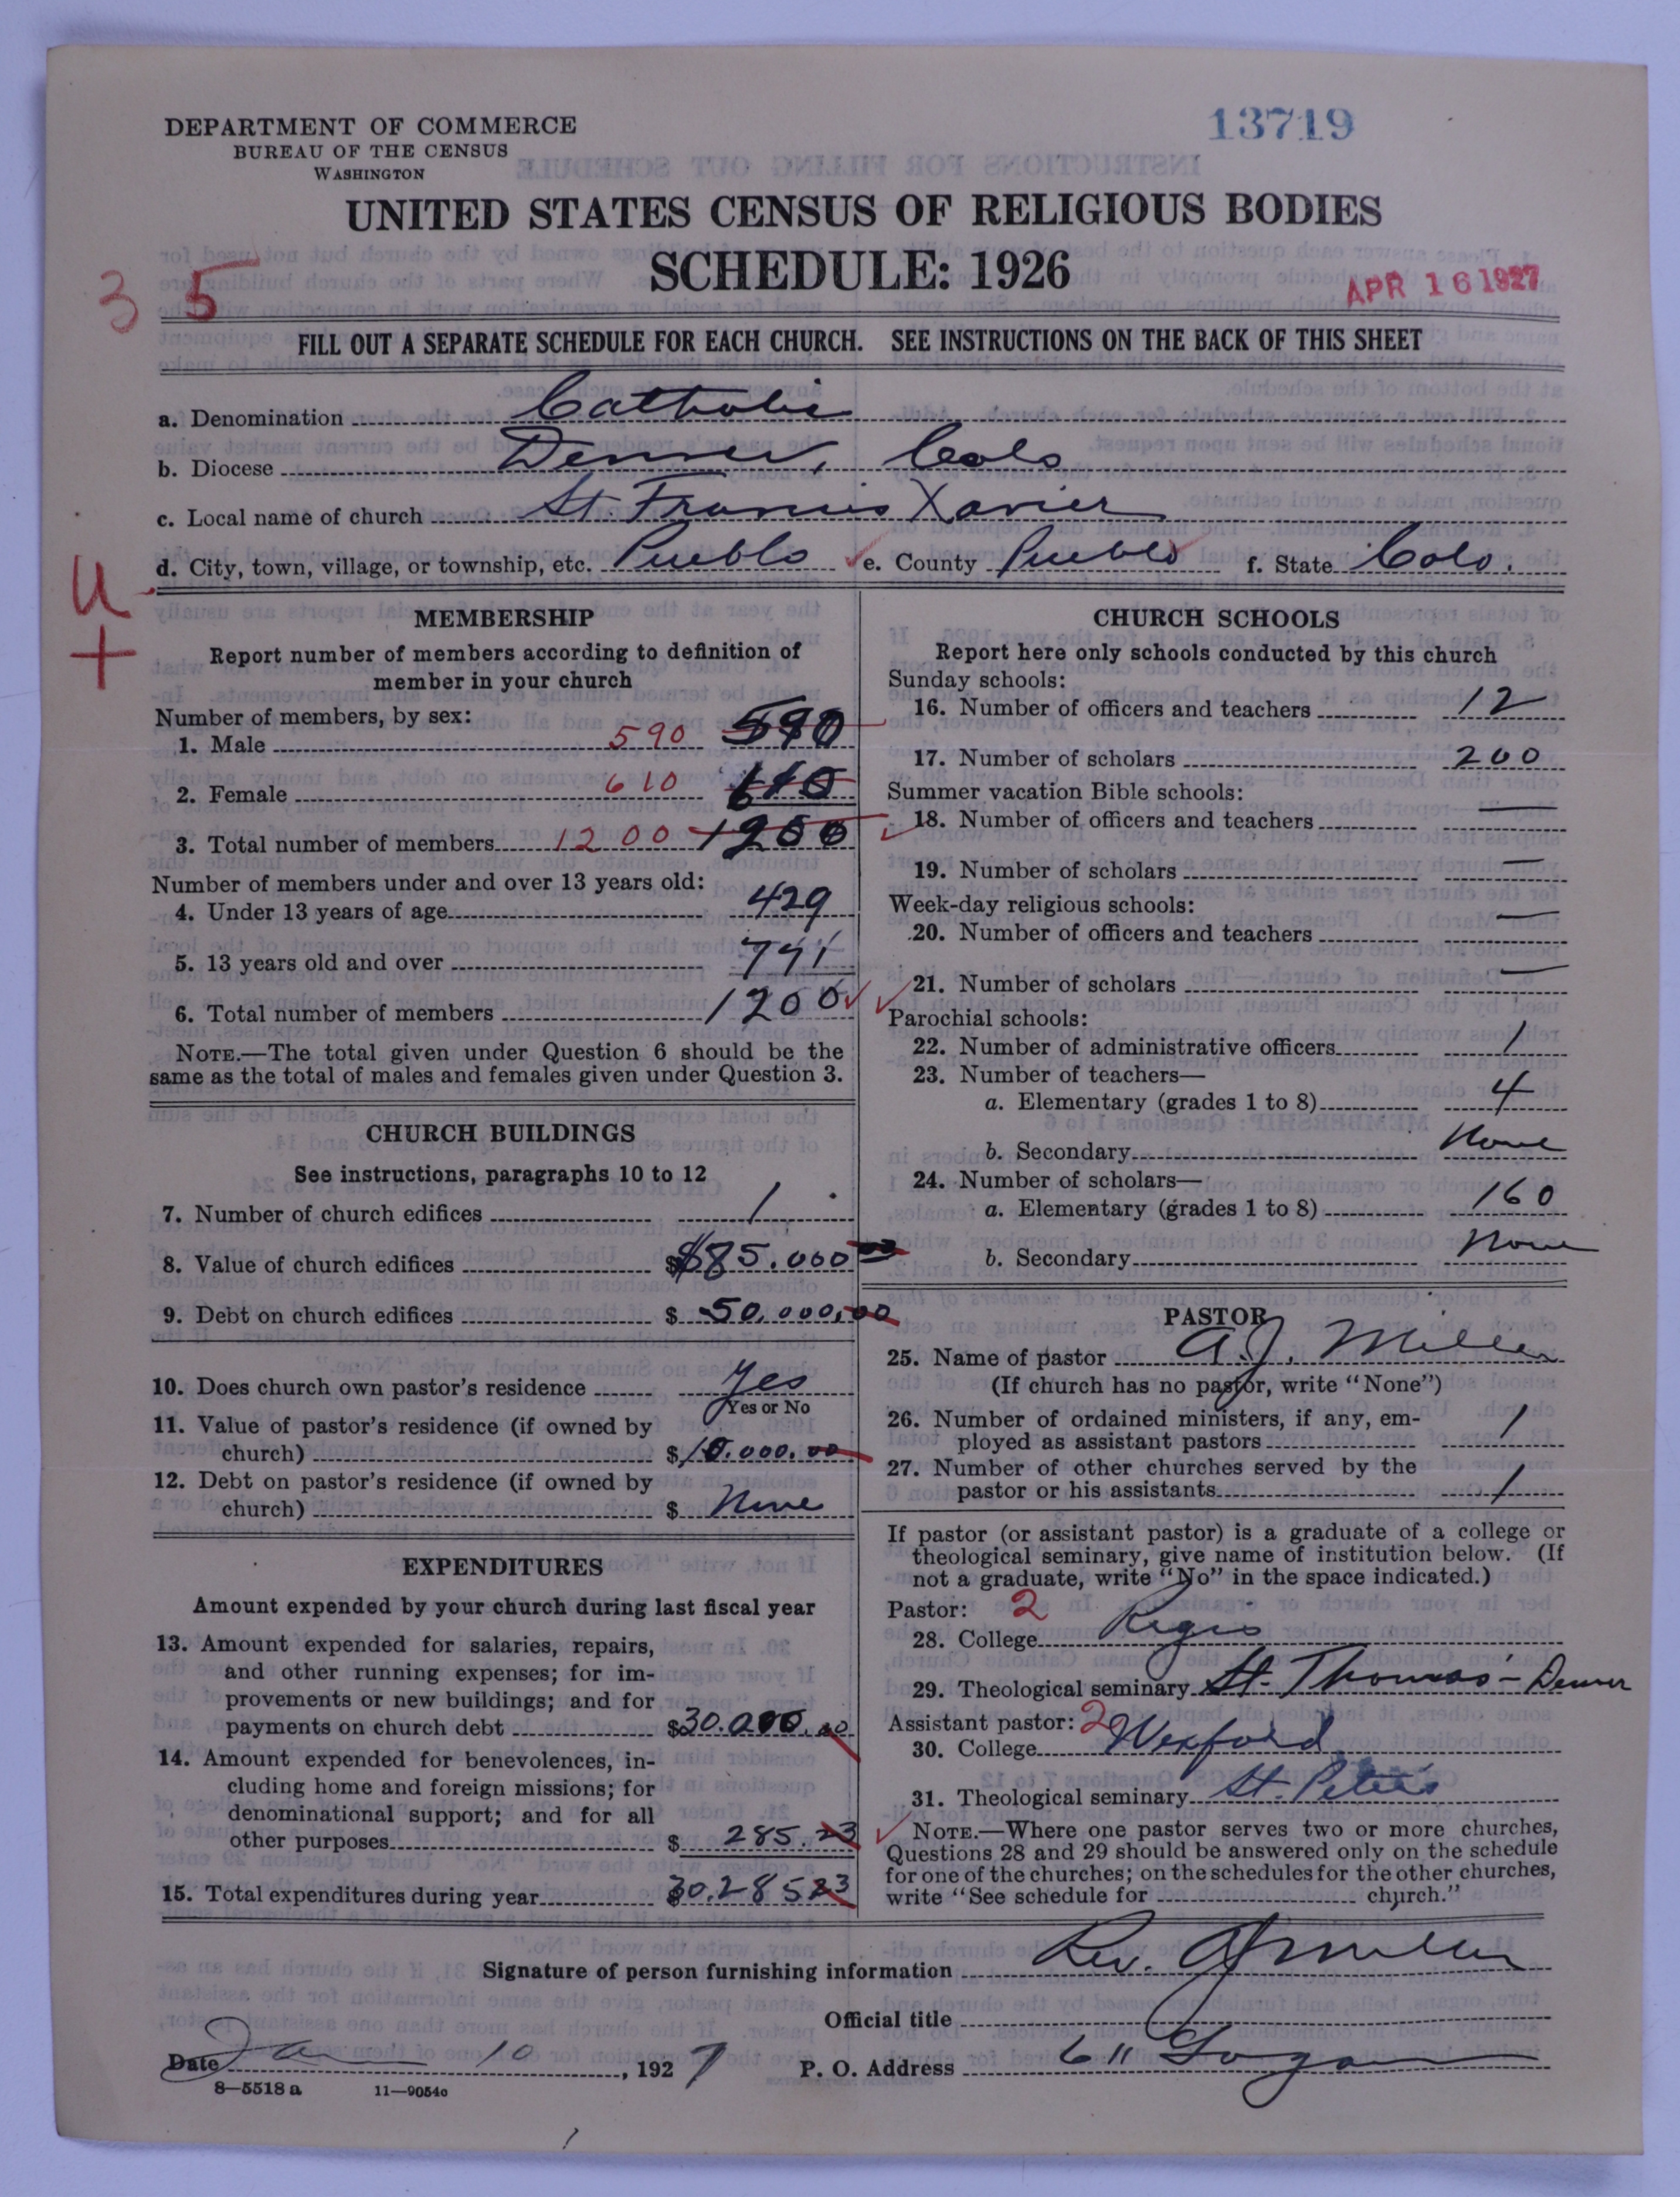 DEPARTMENT OF COMMERCE
BUREAU OF THE CENSUS
WASHINGTON
13719
UNITED STATES CENSUS OF RELIGIOUS BODIES
SCHEDULE: 1926
3 5
APR 16 1927
FILL OUT A SEPARATE SCHEDULE FOR EACH CHURCH. SEE INSTRUCTIONS ON THE BACK OF THIS SHEET
a. Denomination Catholic
b. Diocese Denver, Colo
c. Local name of church St. Francis Xavier
d. City, town, village, or township, etc. Pueblo e. County Pueblo f. State Colo.
U
+
MEMBERSHIP
Report number of members according to definition of
member in your church
Number of members, by sex:
1. Male 590 590
2. Female 610 610
3. Total number of members 1200 1200
Number of members under and over 13 years old:
4. Under 13 years of age 429
5. 13 years old and over 771
6. Total number of members 1200
NOTE.—The total given under Question 6 should be the
same as the total of males and females given under Question 3.
CHURCH BUILDINGS
See instructions, paragraphs 10 to 12
7. Number of church edifices 1
8. Value of church edifices $85.000
9. Debt on church edifices $ 50,000,00
10. Does church own pastor's residence Yes
Yes or No
11. Value of pastor's residence (if owned by
church) $10.000.00
12. Debt on pastor's residence (if owned by
church) $ None
EXPENDITURES
Amount expended by your church during last fiscal year
13. Amount expended for salaries, repairs,
and other running expenses; for im-
provements or new buildings; and for
payments on church debt $30.000.00
14. Amount expended for benevolences, in-
cluding home and foreign missions; for
denominational support; and for all
other purposes $ 285.23
15. Total expenditures during year $30.28523
CHURCH SCHOOLS
Report here only schools conducted by this church
Sunday schools:
16. Number of officers and teachers 12
17. Number of scholars 200
Summer vacation Bible schools:
18. Number of officers and teachers —
19. Number of scholars —
Week-day religious schools:
20. Number of officers and teachers —
21. Number of scholars —
Parochial schools:
22. Number of administrative officers 1
23. Number of teachers—
a. Elementary (grades 1 to 8) 4
b. Secondary None
24. Number of scholars—
a. Elementary (grades 1 to 8) 160
b. Secondary None
PASTOR
25. Name of pastor A.J. Miller
(If church has no pastor, write "None")
26. Number of ordained ministers, if any, em-
ployed as assistant pastors 1
27. Number of other churches served by the
pastor or his assistants 1
If pastor (or assistant pastor) is a graduate of a college or
theological seminary, give name of institution below. (If
not a graduate, write "No" in the space indicated.)
Pastor: 2
28. College Regis
29. Theological seminary St. Thomas - Denver
Assistant pastor: 2
30. College Wexford
31. Theological seminary St. Peters
NOTE.—Where one pastor serves two or more churches,
Questions 28 and 29 should be answered only on the schedule
for one of the churches; on the schedules for the other churches,
write "See schedule for church."
Signature of person furnishing information Rev. AJ Miller
Official title
Date Jan 10, 1927 P. O. Address 611 Logan
8—5518a 11—9054c